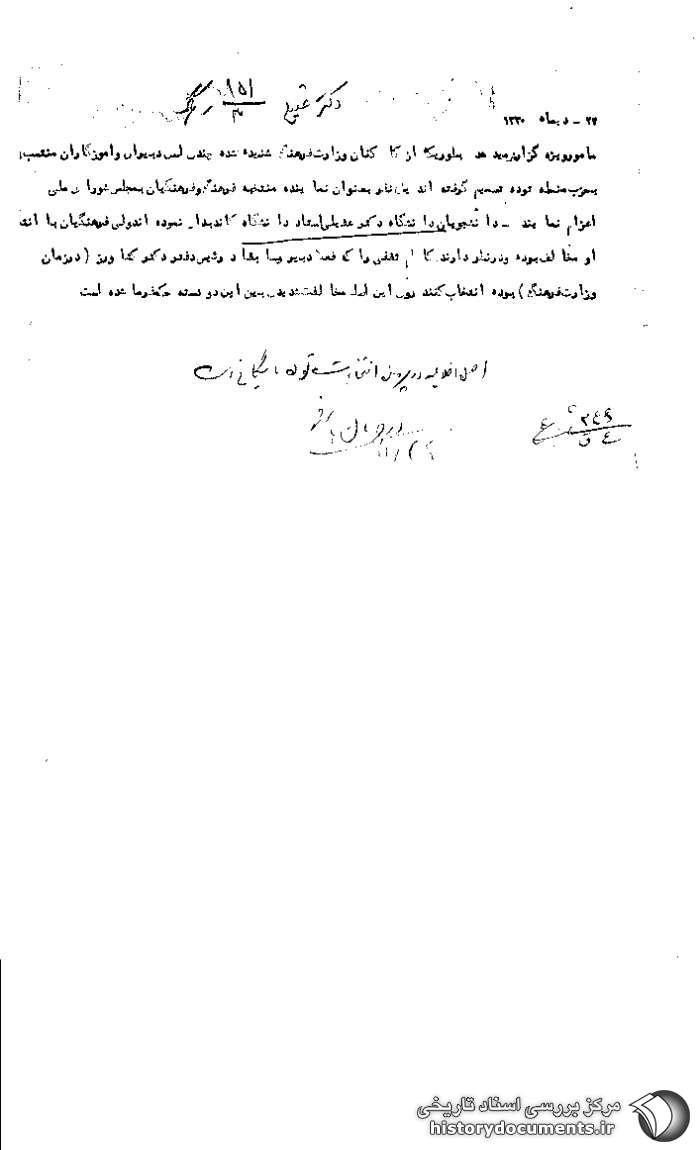 دکتر عقیلی ۱۵۱/۳
۲۲ - دیماه ۱۳۳۰
مامورویژه گزارش میدهد بطوریکه از کارکنان وزارت فرهنگ شنیده شده چندی پس دبیران و آموزگاران منتسب
بحزب منحله توده تصمیم گرفته اند یک نفر بعنوان نماینده منتخبه فرهنگ و فرهنگیان بمجلس شورای ملی
اعزام نمایند - دانشجویان دانشگاه دکتر عقیلی استاد دانشگاه کاندیدا نموده اند ولی فرهنگیان با
او مخالف بوده و در نظر دارند کاظم ثقفی را که فعلا دبیر و سابقا رئیس دفتر دکتر کشاورز (در زمان
وزارت فرهنگ) بوده انتخاب کنند روی این اصل مخالفت شدیدی بین این دو دسته حکمفرما شده است
اصل اطلاعیه در پرونده انتخابات توده بایگانی است
مرکز بررسی اسناد تاریخی
historydocuments.ir